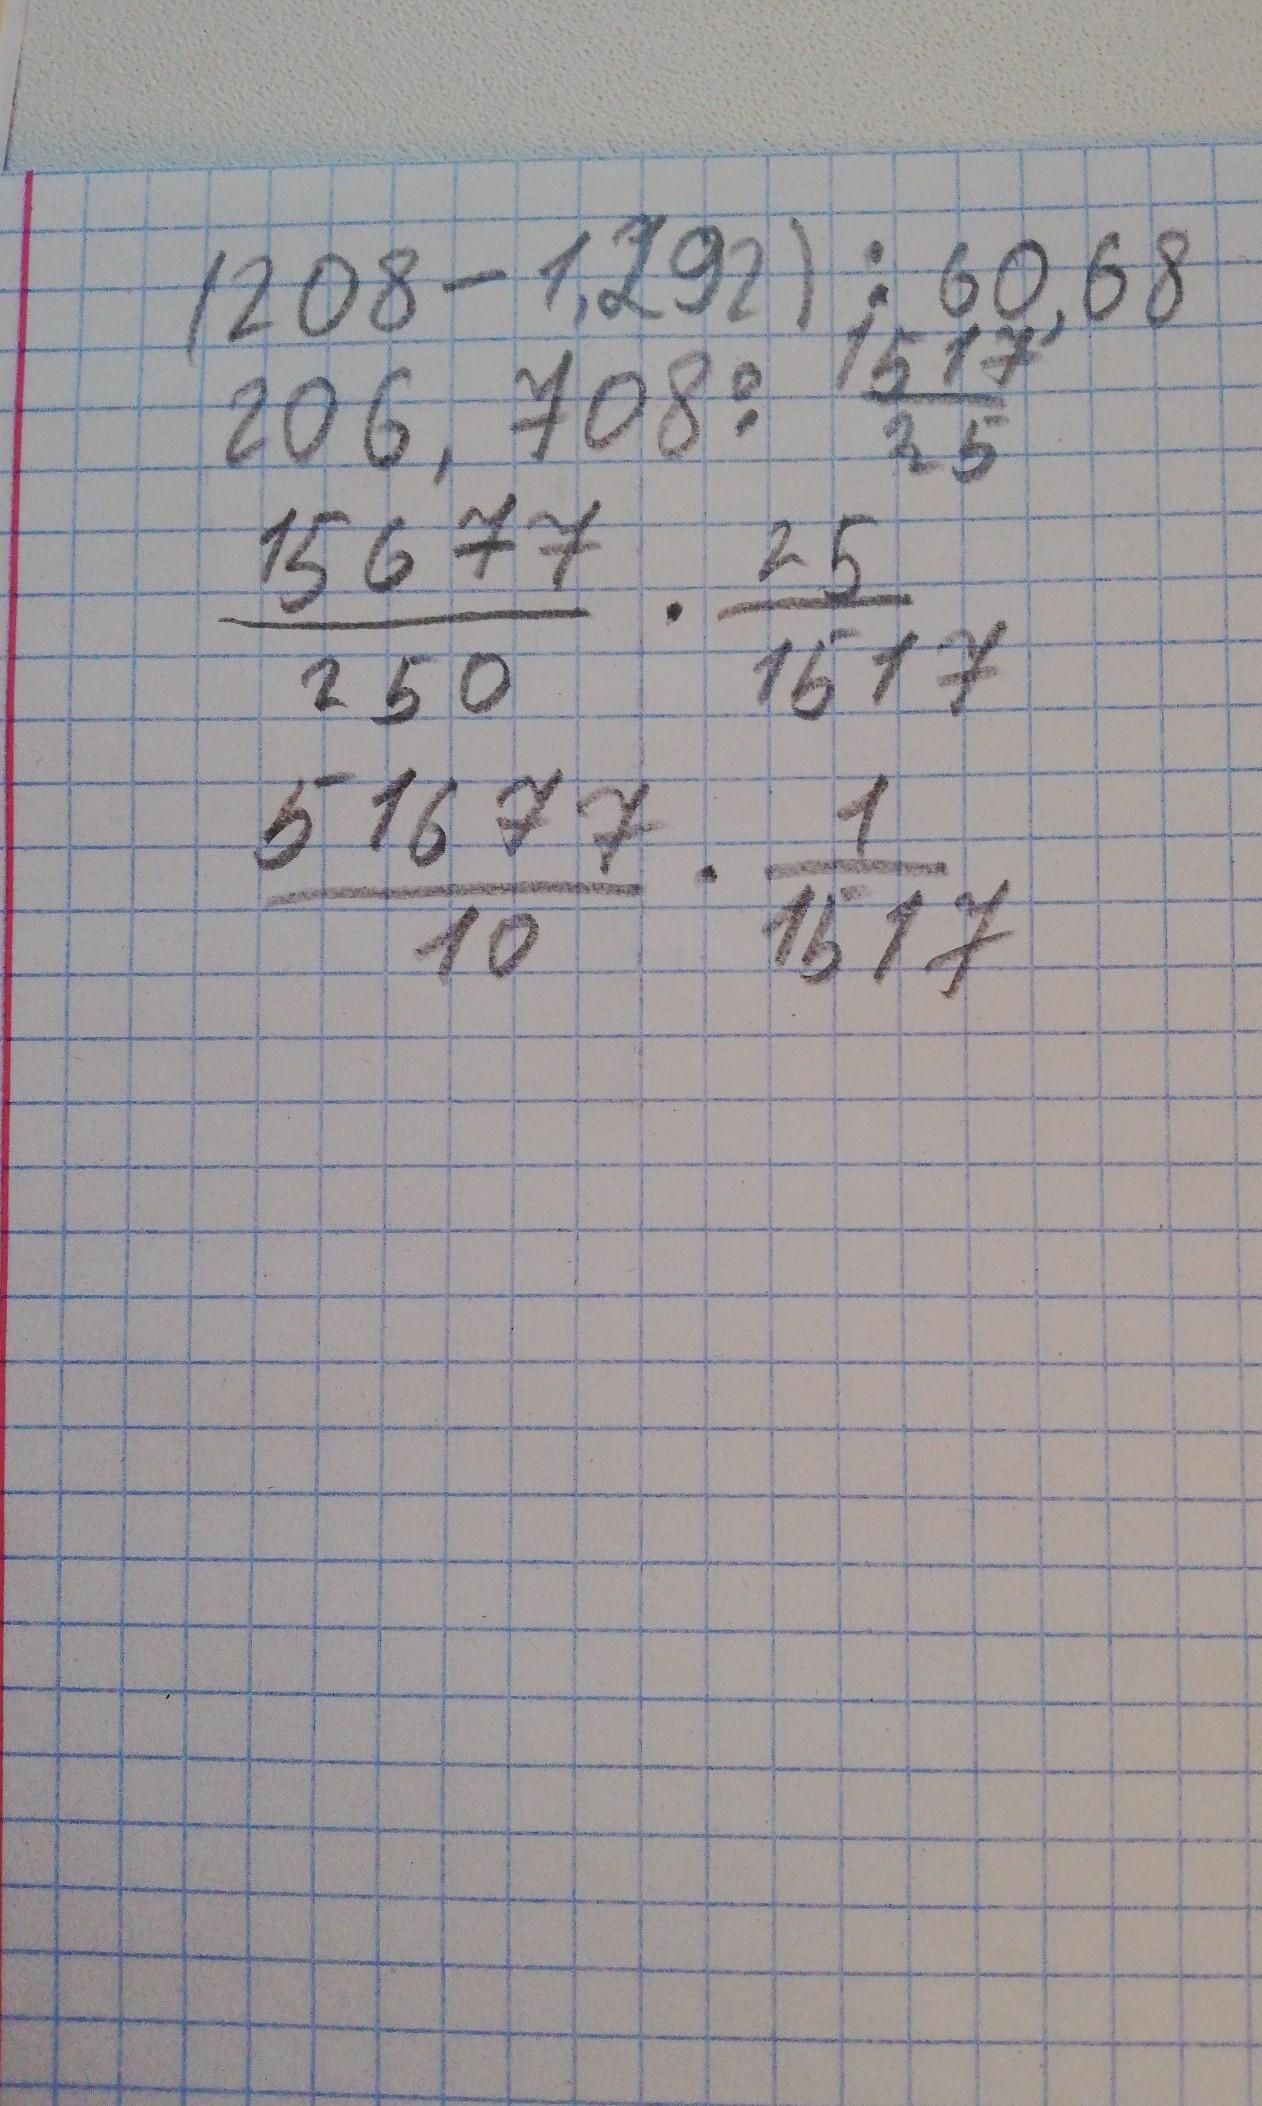 (208-1,292):60,68
206,708: 1517/25
15677/250 · 25/1517
51677/10 · 1/1517